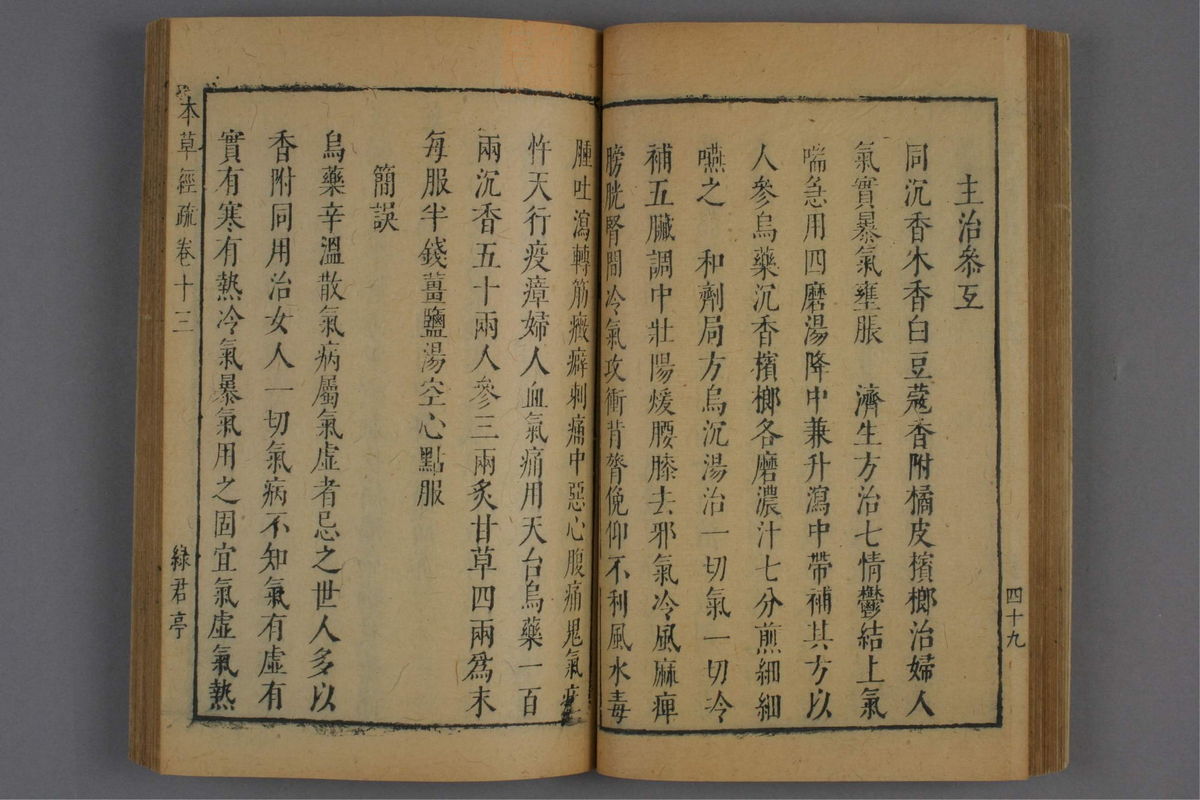 主治參互
同沉香木香白豆蔻香附橘皮檳榔治婦人
氣實暴氣壅脹　濟生方治七情鬱結上氣
喘急用四磨湯降中兼升瀉中帶補其方以
人參烏藥沉香檳榔各磨濃汁七分煎細細
嚥之　和劑局方烏沉湯治一切氣一切冷
補五臟調中壯陽煖腰膝去邪氣冷風麻痺
膀胱腎間冷氣攻衝背膂俛仰不利風水毒
四十九
腫吐瀉轉筋癥癖刺痛中惡心腹痛鬼氣疰
忤天行疫瘴婦人血氣痛用天台烏藥一百
兩沉香五十兩人參三兩炙甘草四兩爲末
每服半錢薑鹽湯空心點服
簡誤
烏藥辛溫散氣病屬氣虛者忌之世人多以
香附同用治女人一切氣病不知氣有虛有
實有寒有熱冷氣暴氣用之固宜氣虛氣熱
本草經疏卷十三
綠君亭